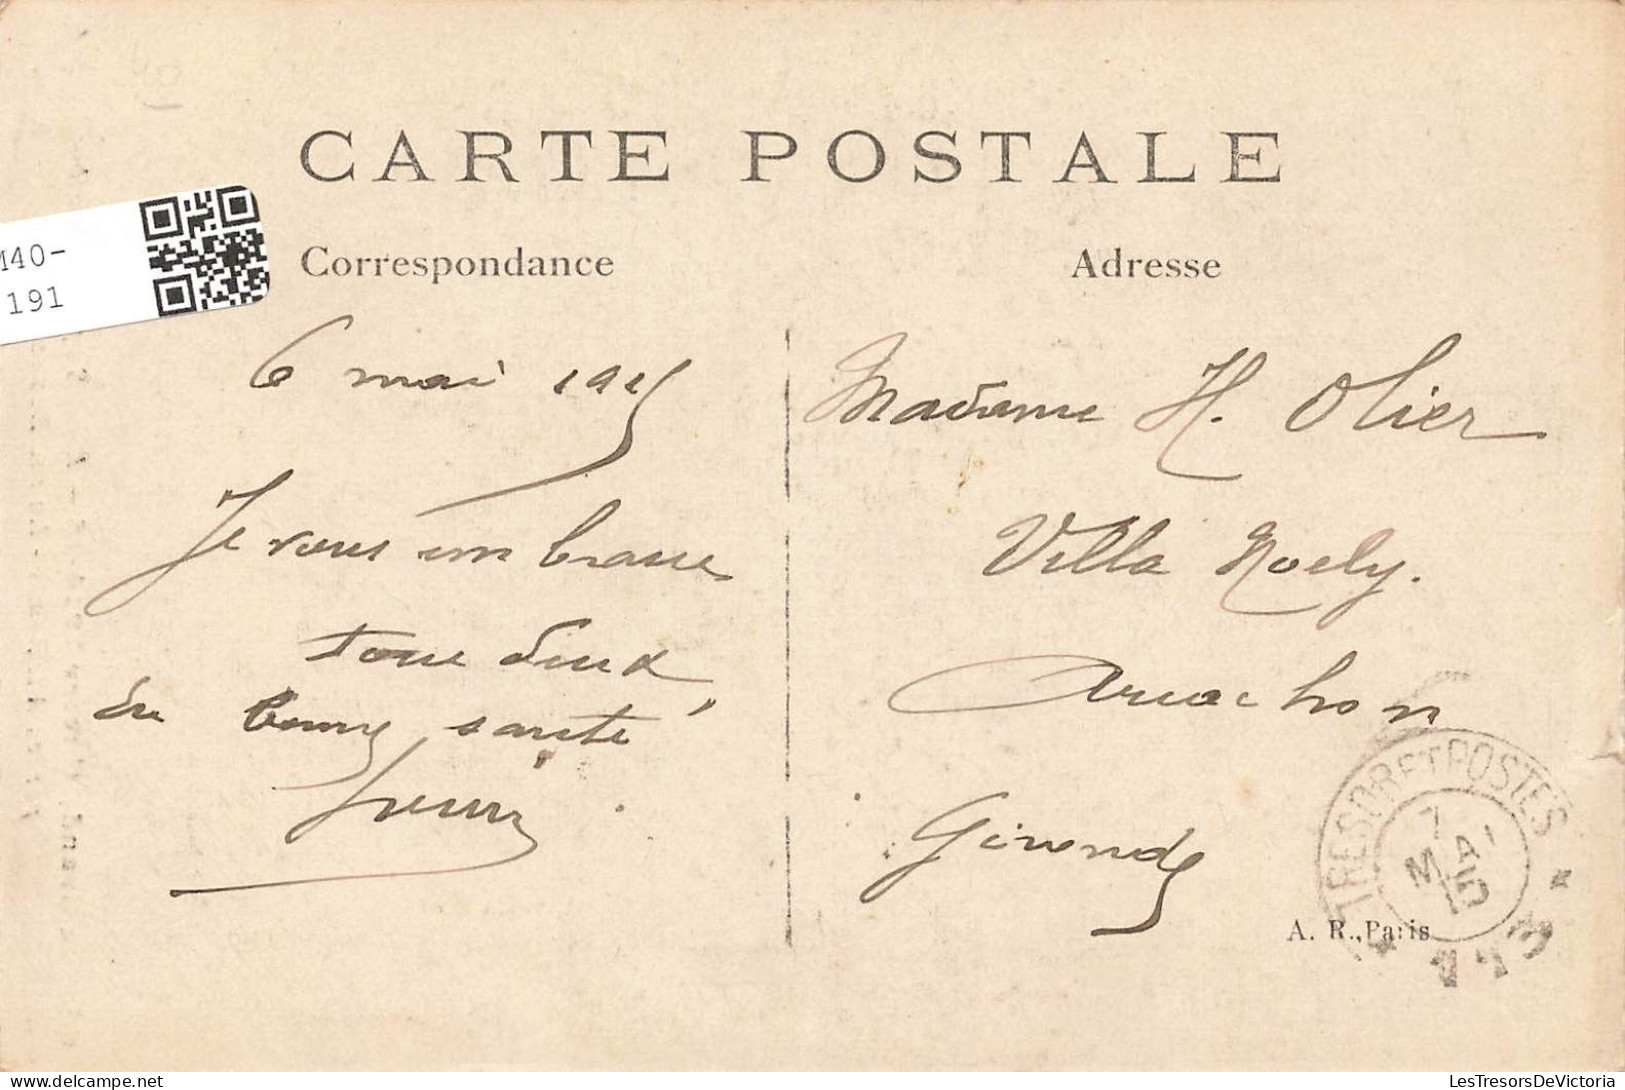 CARTE POSTALE
M40-
191
Correspondance
Adresse
6 mai 1915
Je vous embrasse
tous deux
En bonne santé
Madame H. Olier
Villa Noely.
Arcachon
Gironde
TRESOR ET POSTES
7
MAI
15
A. R., Paris
LesTresorsDeVictoria
delcampe.net